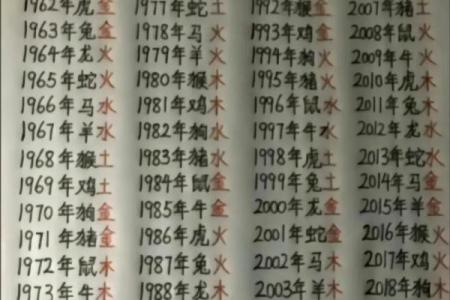 1962年虎金 1977年蛇土 1992年猴金 2007年猪土
1963年兔金 1978年马火 1993年鸡金 2008年鼠火
1964年龙火 1979年羊火 1994年狗火 2009年牛火
1965年蛇火 1980年猴木 1995年猪火 2010年虎木
1966年马水 1981年鸡木 1996年鼠水 2011年兔木
1967年羊水 1982年狗水 1997年牛水 2012年龙水
1968年猴土 1983年猪水 1998年虎土 2013年蛇水
1969年鸡土 1984年鼠金 1999年兔土 2014年马金
1970年狗金 1985年牛金 2000年龙金 2015年羊金
1971年猪金 1986年虎火 2001年蛇金 2016年猴火
1972年鼠木 1987年兔火 2002年马木 2017年鸡火
1973年牛木 1988年龙木 2003年羊木 2018年狗木